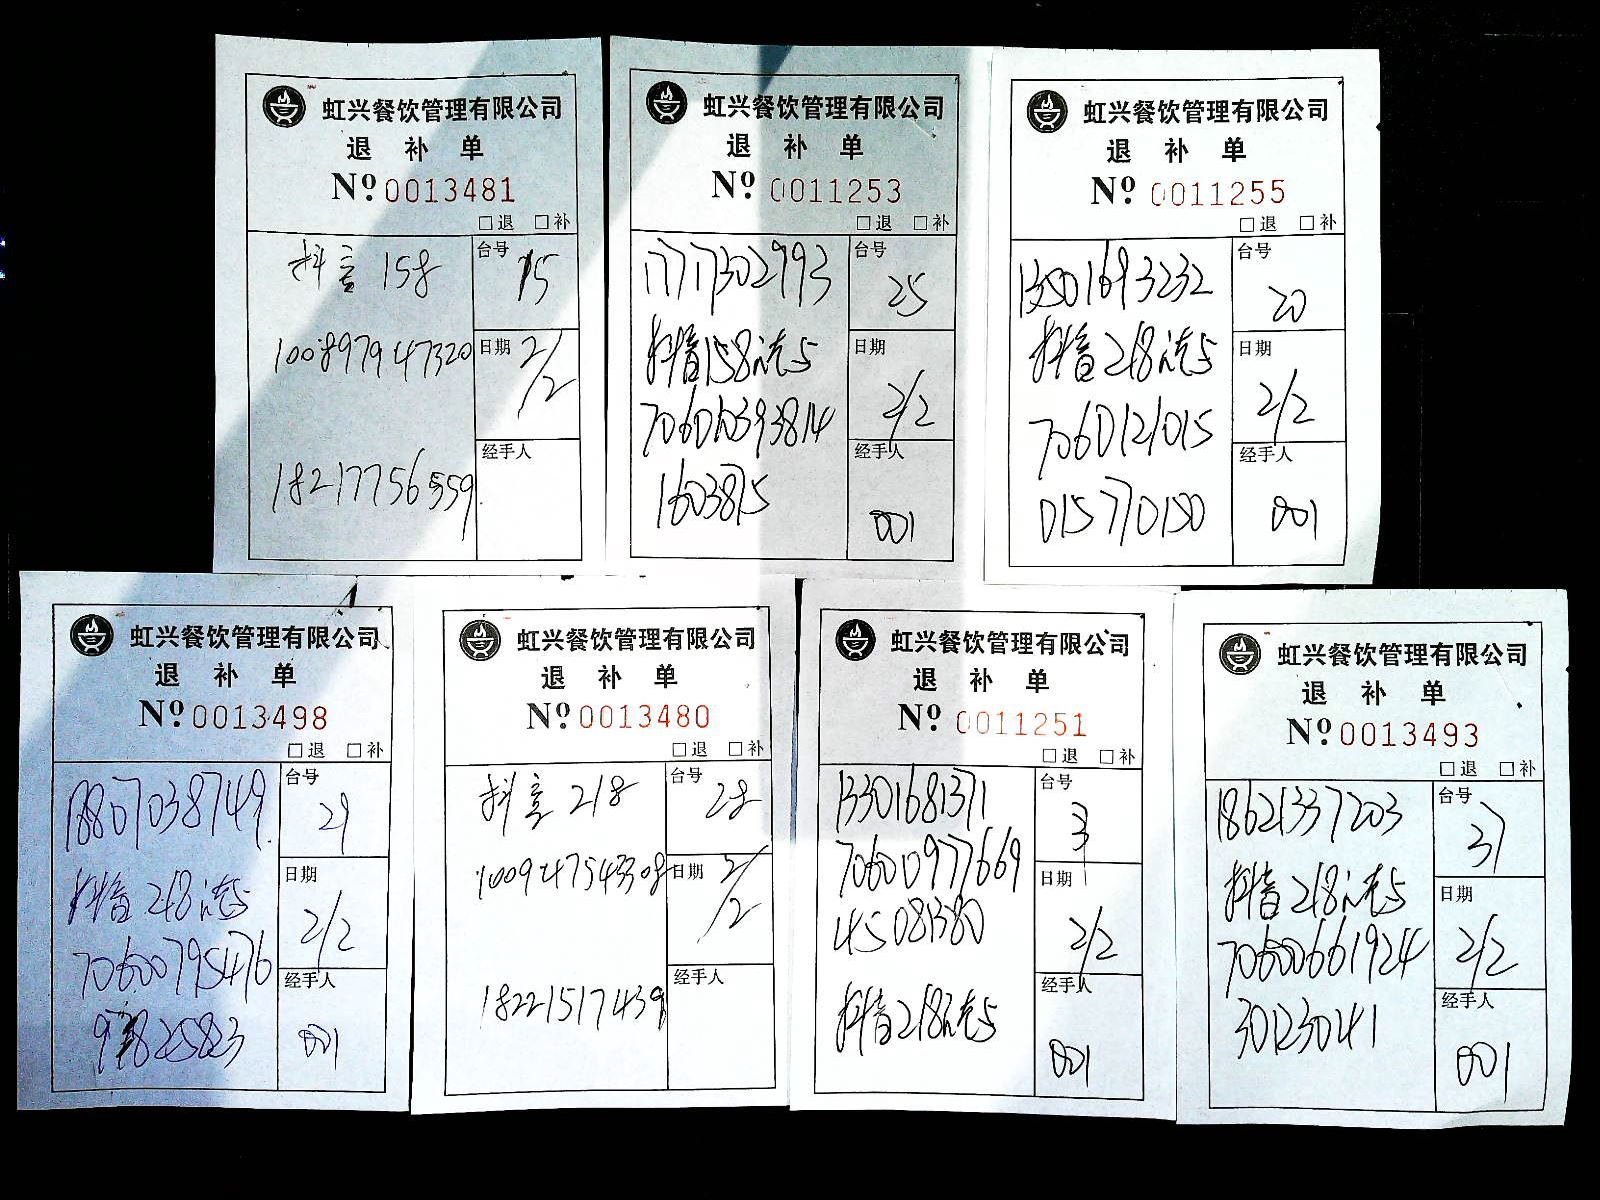 虹兴餐饮管理有限公司
退 补 单
№ 0013481
□退 □补
抖音 158
台号 15
100897947320
日期 2/2
18217756559
经手人
虹兴餐饮管理有限公司
退 补 单
№ 0011253
□退 □补
17717302993
台号 25
抖音158洗5
日期 2/2
706010393814
1603815
经手人 001
虹兴餐饮管理有限公司
退 补 单
№ 0011255
□退 □补
13501693232
台号 20
抖音218洗5
日期 2/2
7060121015
015770150
经手人 001
虹兴餐饮管理有限公司
退 补 单
№ 0013498
□退 □补
18807038749
台号 29
抖音218洗5
日期 2/2
70600795476
经手人 001
虹兴餐饮管理有限公司
退 补 单
№ 0013480
□退 □补
抖音 218
台号 28
100947543308
日期 2/2
18221517439
经手人
虹兴餐饮管理有限公司
退 补 单
№ 0011251
□退 □补
13301681371
台号 3
70600977669
45081380
日期 2/2
抖音218洗5
经手人 001
虹兴餐饮管理有限公司
退 补 单
№ 0013493
□退 □补
18621337203
台号 37
抖音218洗5
日期 2/2
70600661924
30123041
经手人 001